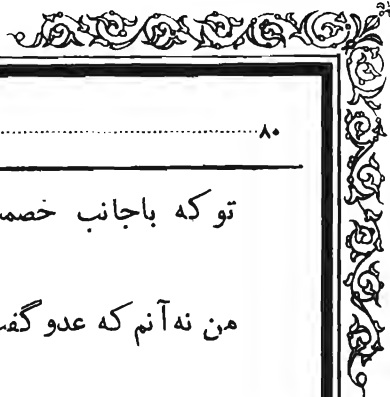 ۸۰
تو که باجانب خصمت
من نه آنم که عدو گفت